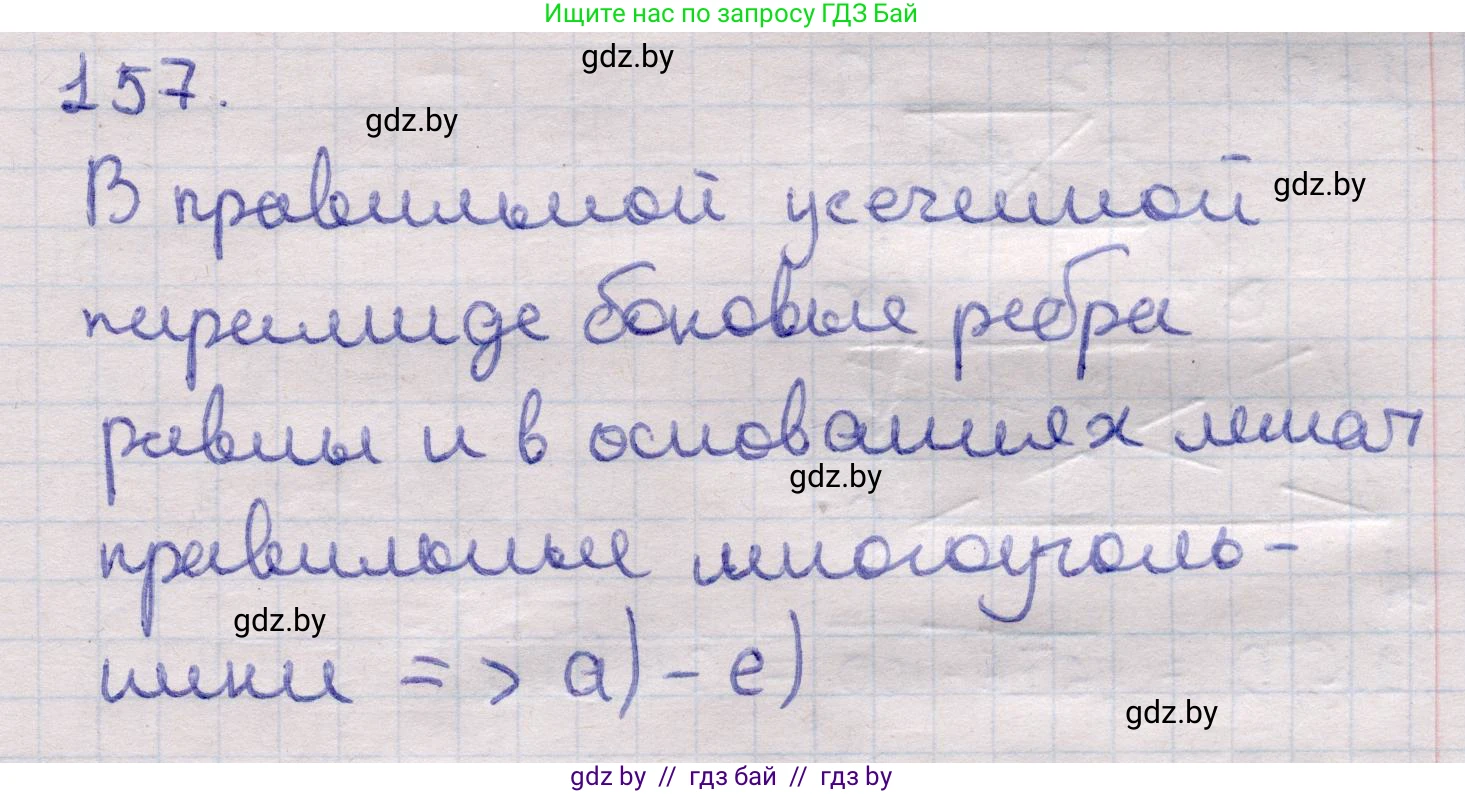 Ищите нас по запросу ГДЗ Бай
gdz.by
157.
gdz.by
В правильной усеченной
gdz.by
пирамиде боковые ребра
равны и в основаниях лежат
gdz.by
правильные многоуголь-
gdz.by
ники => а) - е)
gdz.by
gdz by // гдз бай // гдз by